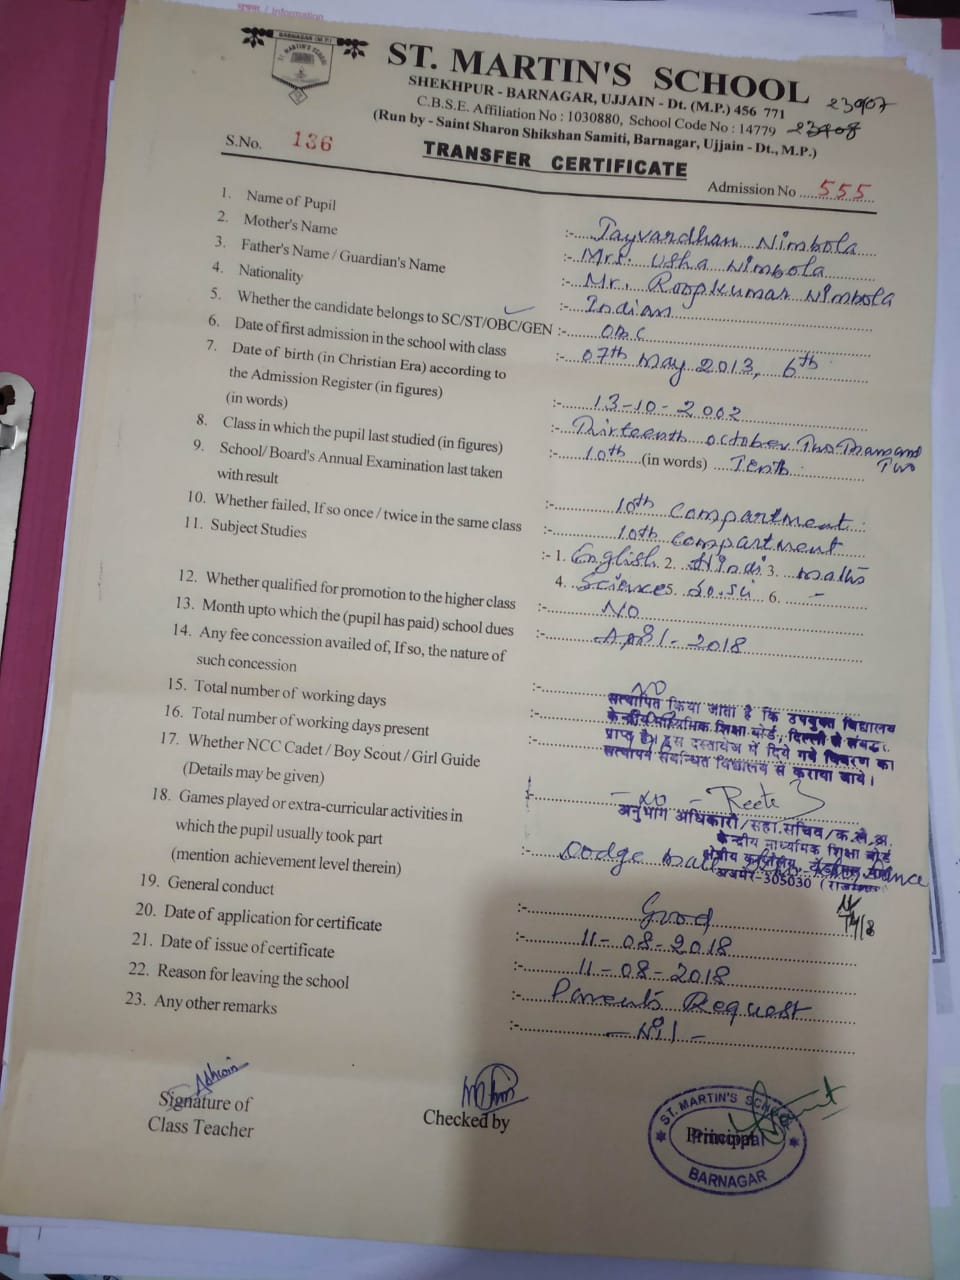 सूचना / Information
BARNAGAR (M.P.)
ST. MARTIN'S SCHOOL
ST. MARTIN'S SCHOOL
SHEKHPUR - BARNAGAR, UJJAIN - Dt. (M.P.) 456 771 23907
C.B.S.E. Affiliation No : 1030880, School Code No : 14779 23908
(Run by - Saint Sharon Shikshan Samiti, Barnagar, Ujjain - Dt., M.P.)
S.No. 136
TRANSFER CERTIFICATE
Admission No 555
1. Name of Pupil :- Jayvardhan Nimbola
2. Mother's Name :- Mrs. Usha Nimbola
3. Father's Name / Guardian's Name :- Mr. Roopkumar Nimbola
4. Nationality :- Indian
5. Whether the candidate belongs to SC/ST/OBC/GEN :- OBC
6. Date of first admission in the school with class :- 07th May 2013, 6th
7. Date of birth (in Christian Era) according to
the Admission Register (in figures) :- 13-10-2002
(in words) :- Thirteenth October Two Thousand Two
8. Class in which the pupil last studied (in figures) :- 10th (in words) Tenth
9. School/ Board's Annual Examination last taken
with result :- 10th Compartment
10. Whether failed, If so once / twice in the same class :- 10th Compartment
11. Subject Studies :- 1. English 2. Hindi 3. Maths
4. Science 5. So.Sci 6. -
12. Whether qualified for promotion to the higher class :- NO
13. Month upto which the (pupil has paid) school dues :- April-2018
14. Any fee concession availed of, If so, the nature of
such concession :- NO
15. Total number of working days :-
16. Total number of working days present :-
सत्यापित किया जाता है कि उपयुक्त विद्यालय
केन्द्रीय माध्यमिक शिक्षा बोर्ड, दिल्ली से संबद्धता
प्राप्त है। इस दस्तावेज में दिये गये विवरण का
सत्यापन संबन्धित विद्यालय से कराया जाये।
17. Whether NCC Cadet / Boy Scout / Girl Guide
(Details may be given) :- - NO -
अनुभाग अधिकारी/सहा.सचिव/क.ले.अ.
केन्द्रीय माध्यमिक शिक्षा बोर्ड
क्षेत्रीय कार्यालय,
अजमेर-305030
18. Games played or extra-curricular activities in
which the pupil usually took part
(mention achievement level therein) :- Dodge ball
19. General conduct :- Good
20. Date of application for certificate :- 11-08-2018
21. Date of issue of certificate :- 11-08-2018
22. Reason for leaving the school :- Parents Request
23. Any other remarks :- - Nil -
Signature of
Class Teacher
Checked by
ST. MARTIN'S SCHOOL
Principal
BARNAGAR